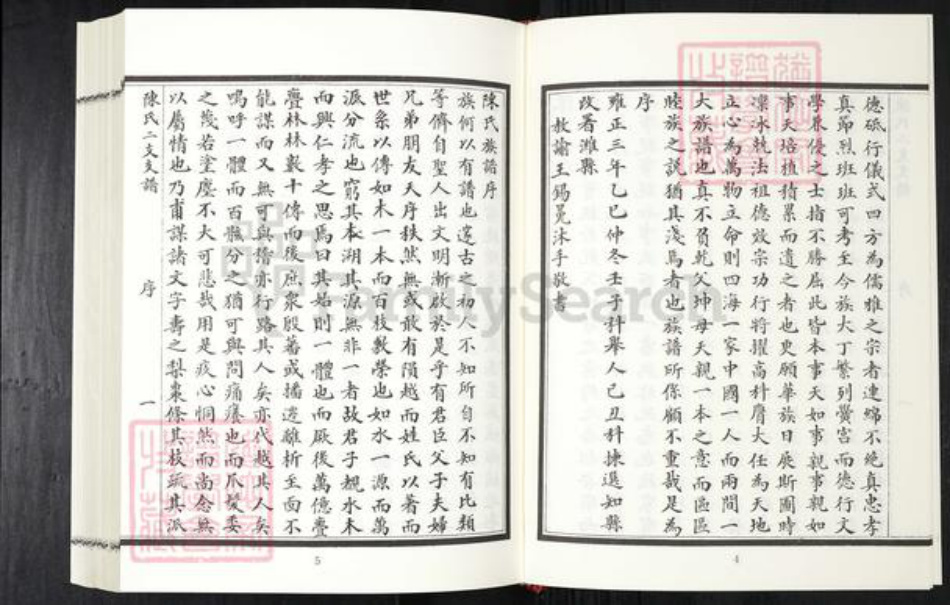 德砥行儀式四方為儒雅之宗者連綿不絶真忠孝
真節烈班班可考至今族大丁繁列黌宮而德行文
學兼優之士指不勝屈此皆本事天如事親事親如
事天培植積累而遺之者也更願華族日
凜冰兢法祖德效宗功行將擢高科膺大任為天地
立心為萬物立命則四海一家中國一人而兩間一
大族譜也真不負乾父坤母天親一本之意而區區
睦族之說猶其淺焉者也族譜所係顧不重哉是為
序
雍正三年乙巳仲冬壬子科舉人己丑科揀選知縣
改署濰縣
教諭王錫冕沐手敬書
陳氏族譜序
族何以有譜也邃古之初人不知所自不知有比類
等儕自聖人出文明漸啟於是乎有君臣父子夫婦
兄弟朋友天序秩然無或敢有隕越而姓氏以著而
世系以傳如木一本而百枝數榮也如水一源而萬
派分流也窮其本溯其源無非一者故君子覩水木
而興仁孝之思焉曰其始則一體也而厥後萬億疊
疊林林數十傳而後庶衆殷蕃或播遷離析至面不
能謀而又無可與偕亦行路其人矣亦代越其人矣
嗚呼一體而百骸分之猶可與問痛癢也而爪髮委
之幾若塗塵不大可悲哉用是疚心恫然而尚念無
以屬情也乃甫謀諸文字壽之梨棗條其枝
陳氏二支支譜
序
一
5
4
FamilySearch